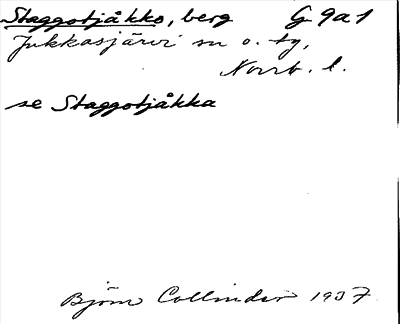 Staggotjåkko, berg G 9a1
Jukkasjärvi sn o. tg,
Norrb. l.
se Staggotjåkka
Björn Collinder 1937